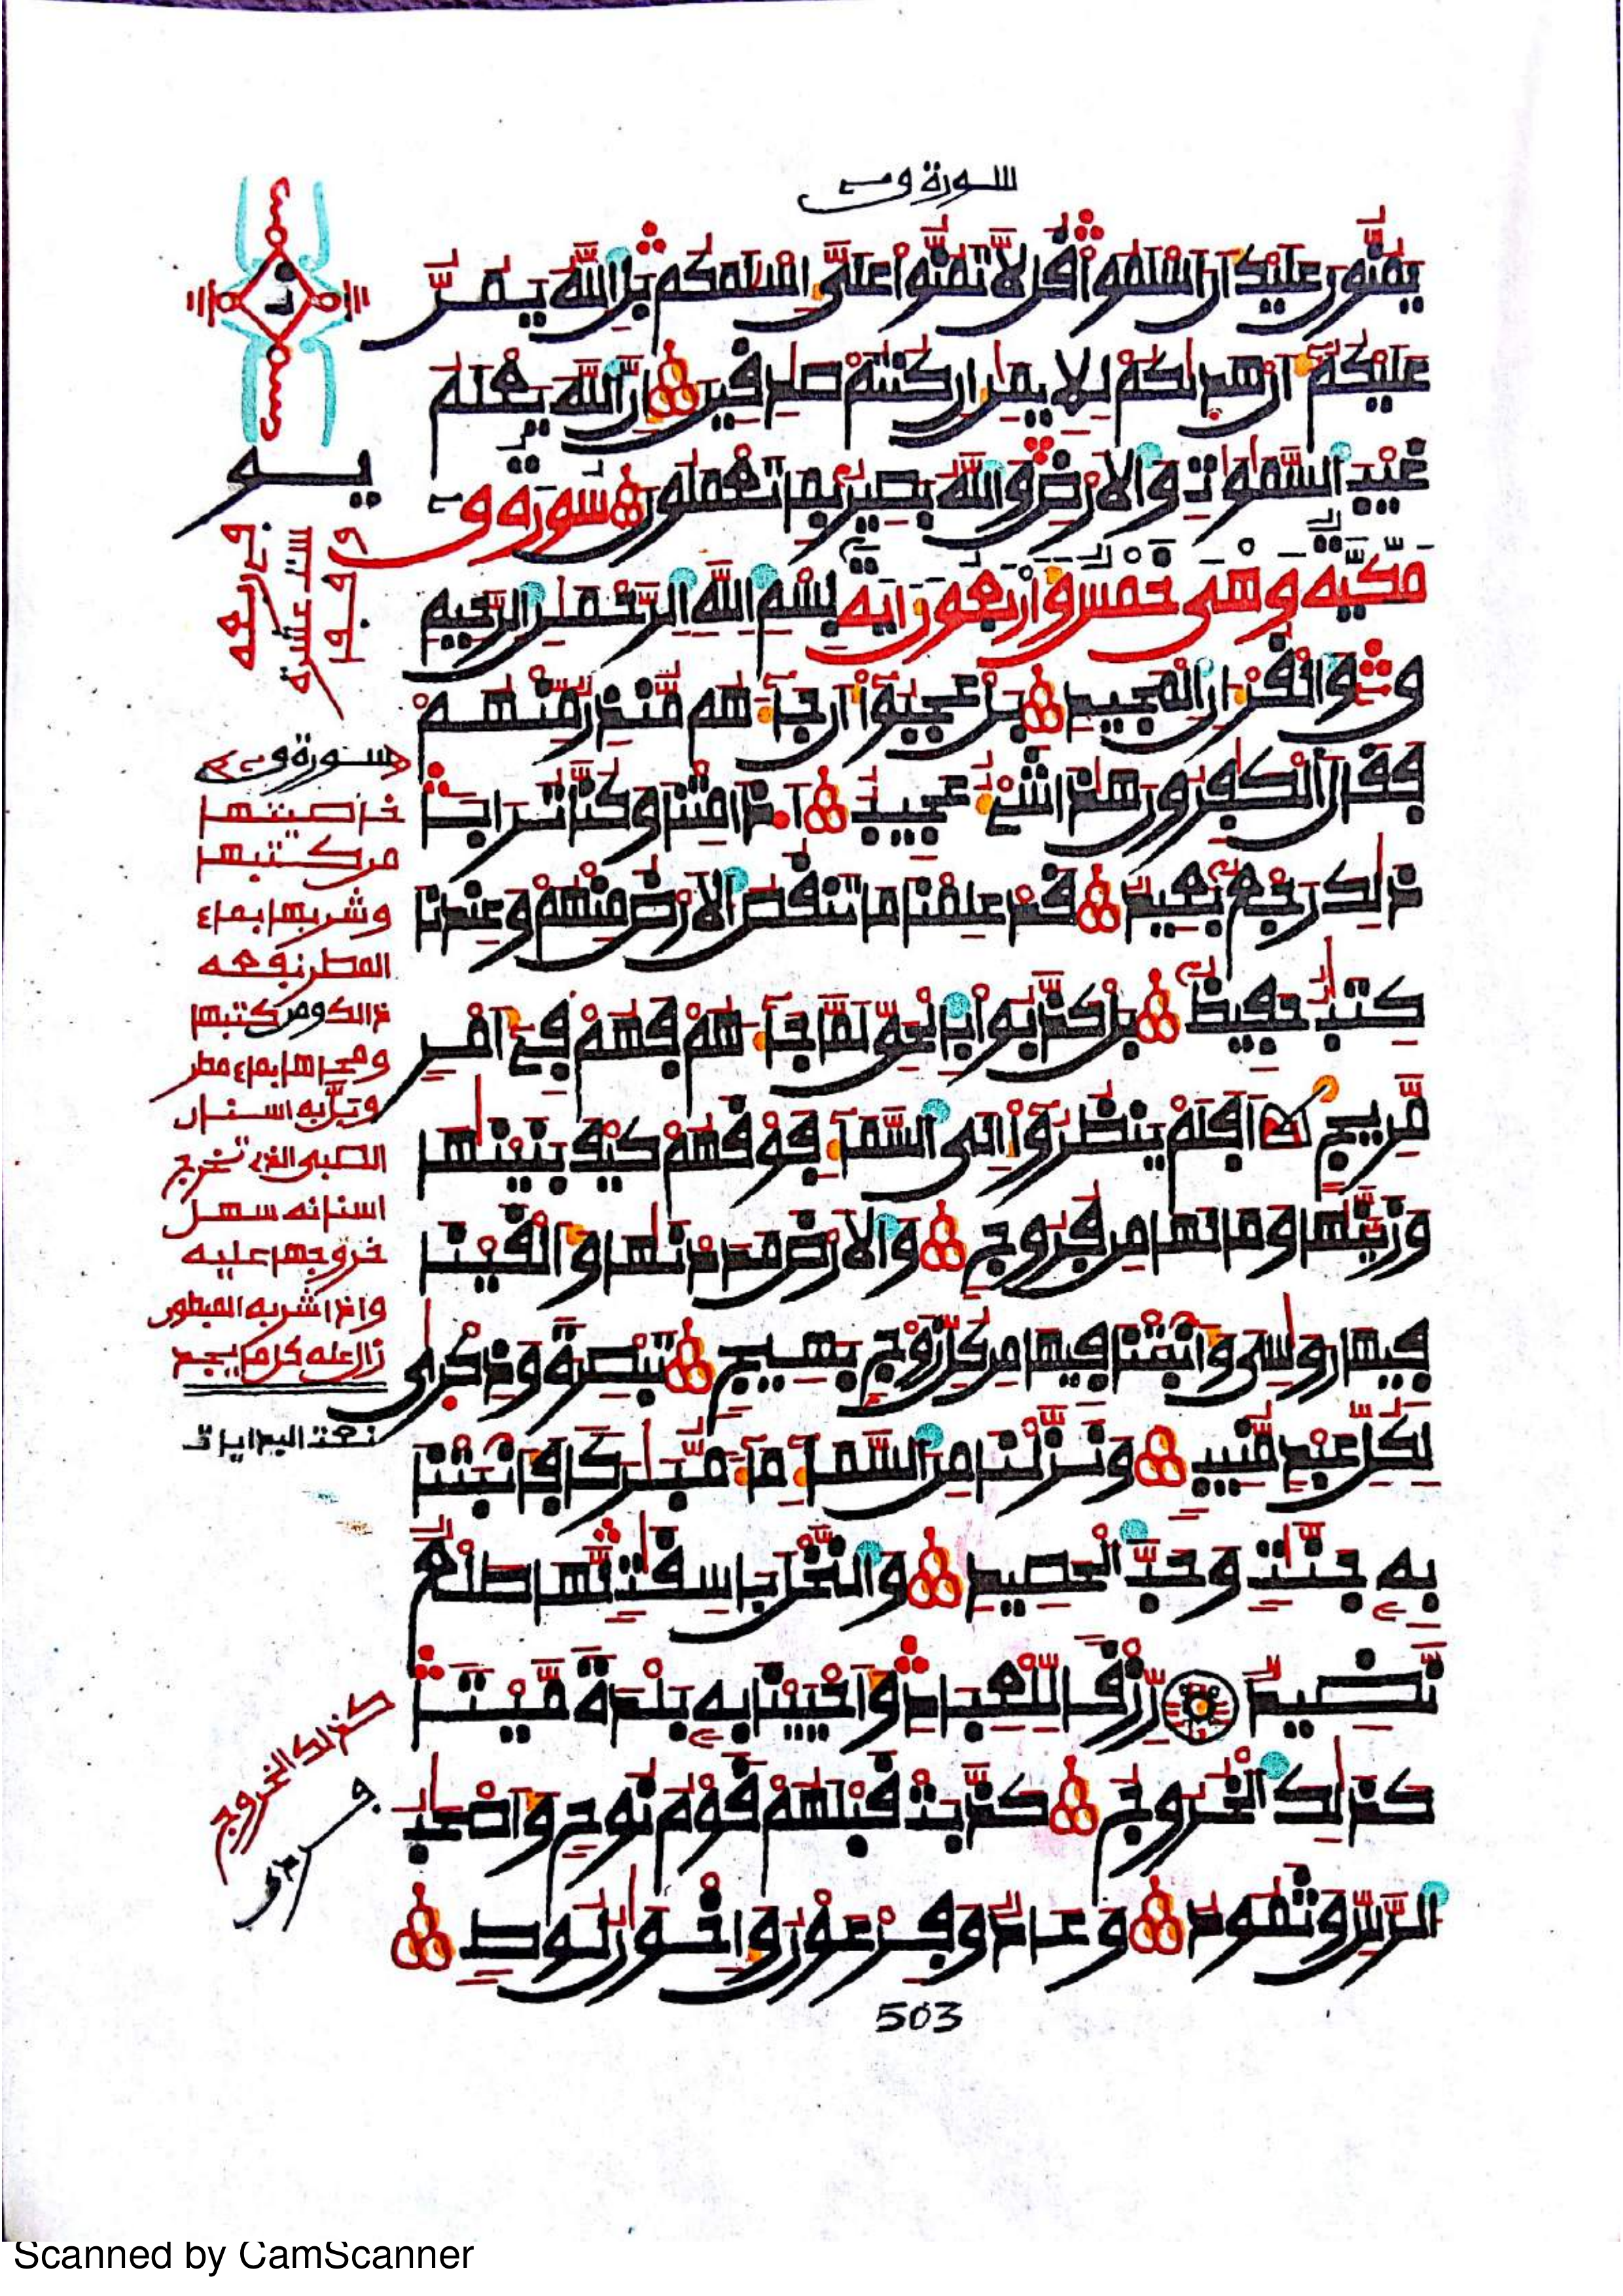 سورة ق
يمنون عليك أن اسلموا قل لا تمنوا على اسلمكم بل الله يمن
عليكم أن هديكم للايمن إن كنتم صدقين إن الله يعلم
غيب السموت والارض والله بصير بما تعملون سورة ق
مكية وهي خمس وأربعون اية بسم الله الرحمن الرحيم
ق والقرءان المجيد بل عجبوا أن جاءهم منذر منهم
فقال الكفرون هذا شيء عجيب أءذا متنا وكنا ترابا
ذلك رجع بعيد قد علمنا ما تنقص الارض منهم وعندنا
كتب حفيظ بل كذبوا بالحق لما جاءهم فهم في أمر
مريج أفلم ينظروا إلى السماء فوقهم كيف بنينها
وزينها وما لها من فروج والارض مددنها وألقينا
فيها روسي وأنبتنا فيها من كل زوج بهيج تبصرة وذكرى
لكل عبد منيب ونزلنا من السماء ماء مبركا فأنبتنا
به جنت وحب الحصيد والنخل باسقت لها طلع
نضيد رزقا للعباد وأحيينا به بلدة ميتا
كذلك الخروج كذبت قبلهم قوم نوح وأصحب
الرس وثمود وعاد وفرعون وإخون لوط
سورة ق
خاصيتها
من كتبها
وشربها بماء
المطر نفعه
ذالك ومن كتبها
ومحاها بماء مطر
اسنان
الصبي الذي تخرج
اسنانه سهل
خروجها عليه
واذا شربه المبطون
زال عنه كل ما يجد
كذلك الخروج
503
Scanned by CamScanner